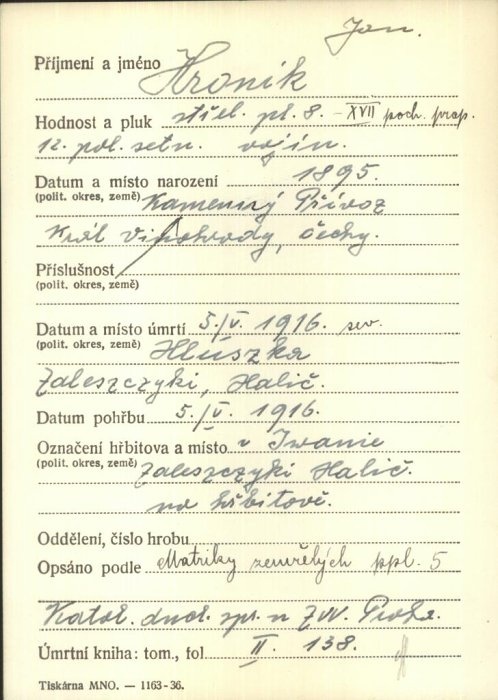 Jan.
Příjmení a jméno Hroník
Hodnost a pluk střel. pl. 8. - XVII poch. prap.
12. pol. setn. vojín.
Datum a místo narození 1895.
(polit. okres, země) Kamenný Přívoz
Král Vinohrady, Čechy.
Příslušnost
(polit. okres, země)
Datum a místo úmrtí 5./V. 1916. sev.
(polit. okres, země) Hluszka
Zaleszczyki, Halič.
Datum pohřbu 5./V. 1916.
Označení hřbitova a místo v Iwanie
(polit. okres, země) Zaleszczyki Halič.
na hřbitově.
Oddělení, číslo hrobu
Opsáno podle Matriky zemřelých ppl. 5
Katol. duch. spr. u ZVV. Praha.
Úmrtní kniha: tom., fol. II. 138.
Tiskárna MNO. — 1163-36.